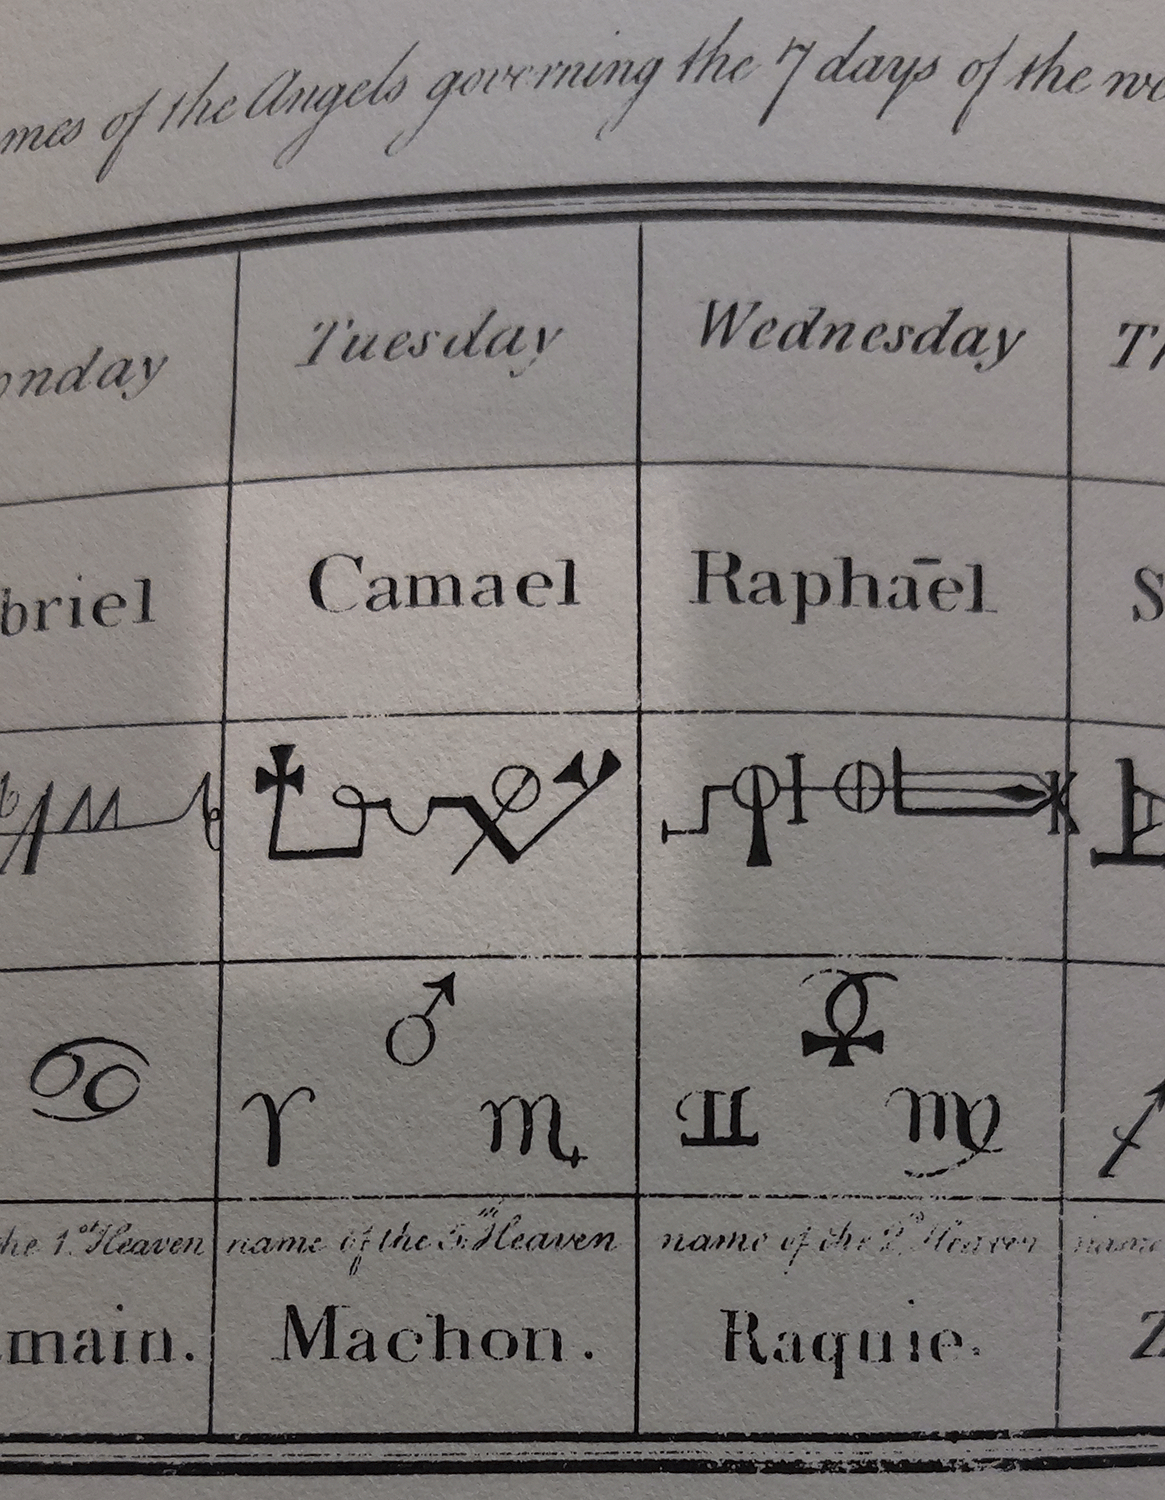 mes of the Angels governing the 7 days of the we
onday Tuesday Wednesday Th
briel Camael Raphāel S
♂ ☿
♋ ♈ ♏ ♊ ♍ ♐
he 1.st Heaven name of the 5.th Heaven name of the 2.d Heaven name
main. Machon. Raquie. Z